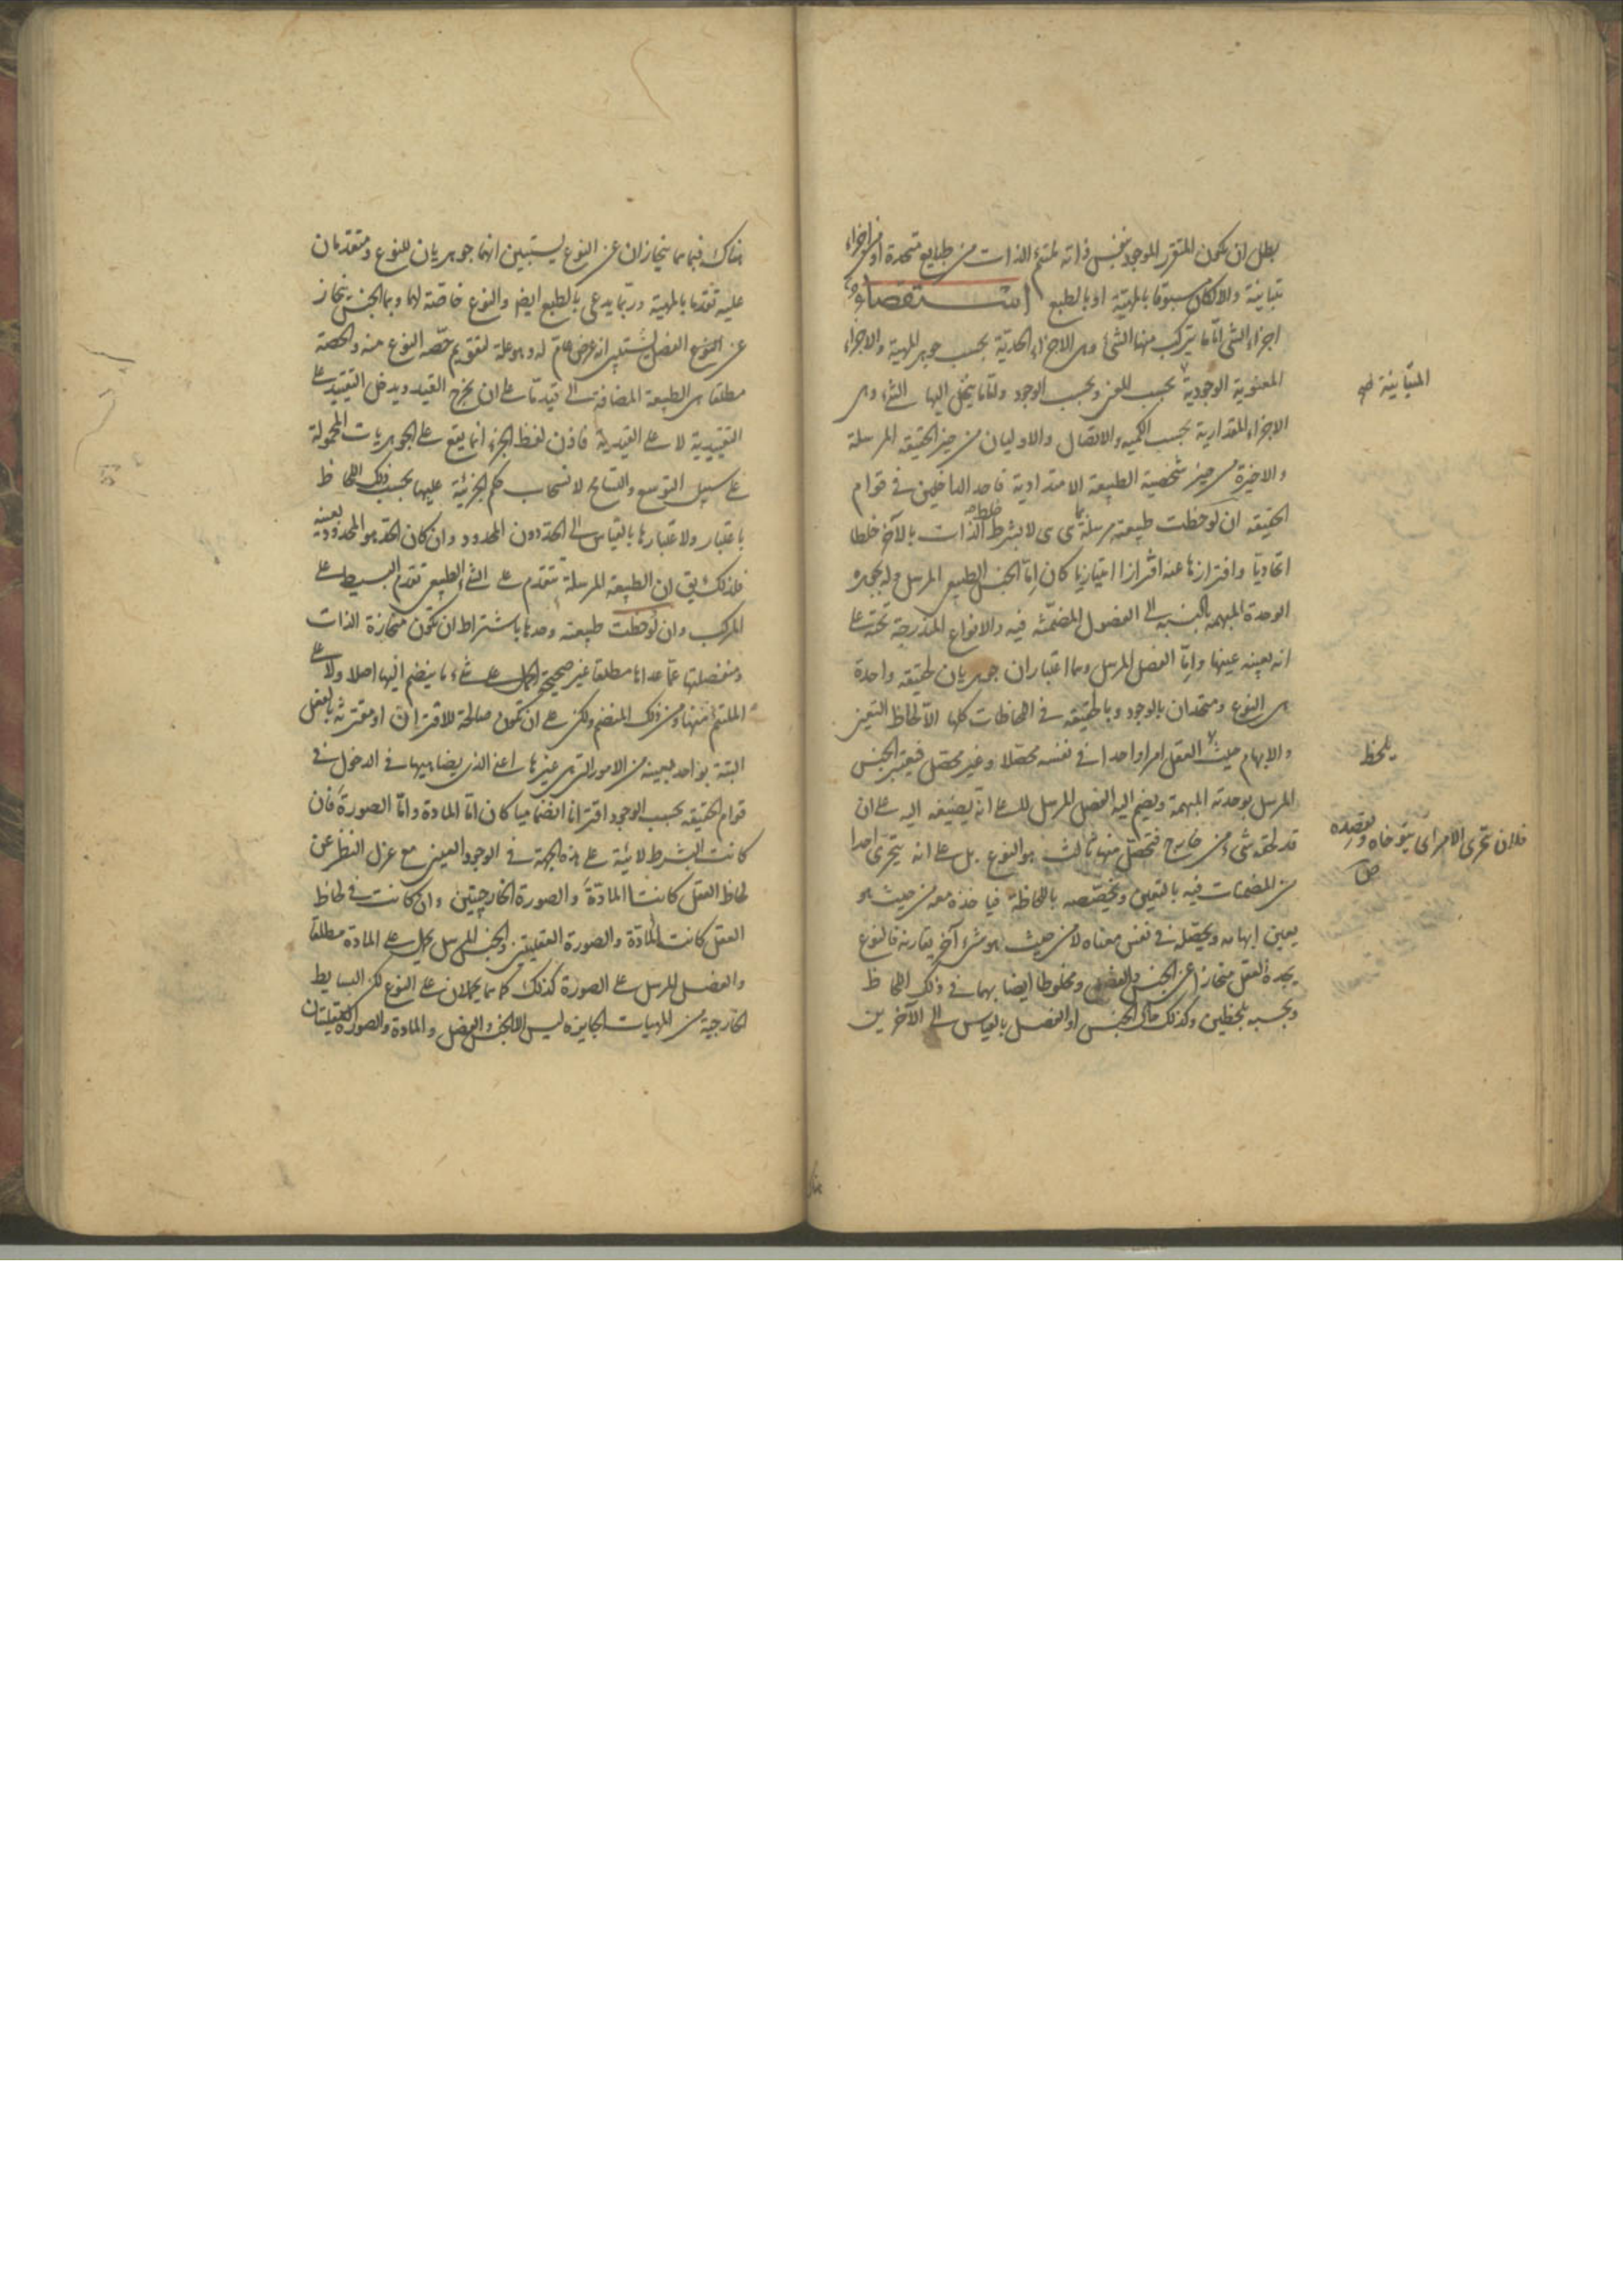 بطل ان يكون المتقرر الموجود بنفس ذاته ملتئم الذات من طبايع متحدة او من اجزاء
متباينة والا لكان مسبوقا بالمهية او بالطبع استقصاء
اجزاء الشئ اما ما يتركب منها الشئ وهى الاجزاء الحدية بحسب جوهر المهية والاجزاء
المعنوية الوجودية بحسب المعنى وبحسب الوجود واما ما ينحل اليها الشئ وهى
الاجزاء المقدارية بحسب الكمية والاتصال والاوليان من حيز الحقيقة المرسلة
والاخيرة من حيز شخصية الطبيعة الامتدادية فاحد الداخلين فى قوام
الحقيقة ان لوحظت طبيعته مرسلة بما هى هى لا بشرط خلط الذات بالآخر خلطا
اتحاديا وافترازها عنه افترازا امتيازيا كان اما الجنس الطبيعى المرسل وله بجوهره
الوحدة المبهمة بالنسبة الى الفصول المضمنة فيه والانواع المندرجة تحته على
انه بعينه عينها واما الفصل المرسل وهما اعتباران جوهريان لحقيقة واحدة
هى النوع ومتحدان بالوجود وبالحقيقة فى اللحاظات كلها الا لحاظ التعين
والابهام حيث العقل امرا واحدا فى نفسه محصلا وغير محصل فيعتبر الجنس
المرسل بوحدته المبهمة ويضم اليه الفصل المرسل لا على انه يضيفه اليه على ان
قد لحقه شئ من خارج فتحصل منهما ثالث هو النوع بل على انه يتحرى احدا
من المضمنات فيه بالتعيين ويخصصه باللحاظ فياخذه معه من حيث هو
يعين ابهامه ويحصله فى نفس معناه لا من حيث هو شئ آخر يقارنه فالنوع
يجده العقل منحازا عن الجنس والفصل ومخلوطا ايضا بهما فى ذلك اللحاظ
وبحسبه بلحظين وكذلك حال الجنس او الفصل بالقياس الى الآخرين
المتباينة
يلحظ
فلان يتحرى الامر اى يتوخاه ويقصده
هناك فبما هما ينحازان عن النوع يستبين انهما جوهريان للنوع ومتقدمان
عليه تقدما بالمهية وربما يدعى بالطبع ايض والنوع خاصة لهما وبما الجنس ينحاز
عن النوع الفصل يستبين انه عرض عام له وهو علة لتقويم حصة النوع منه والحصة
مطلقا هى الطبيعة المضافة الى قيد ما على ان يخرج القيد ويدخل التقييد على
التقييدية لا على القيدية فاذن لفظ الجزء انما يقع على الجوهريات المحمولة
على سبيل التوسع والتسامح لانسحاب حكم الجزئية عليها بحسب ذلك اللحاظ
باعتبار ولاعتبارها بالقياس الى الحد دون المحدود وان كان الحد هو المحدود بعينه
فلذلك يق ان الطبيعة المرسلة تتقدم على الشئ الطبيعى تقدم البسيط على
المركب وان لوحظت طبيعته وحدها باشتراط ان تكون منحازة الذات
ومنفصلتها عما عداها مطلقا غير صحيحة الحمل على شئ مما ينضم اليها اصلا ولا على
الملتئم منها ومن ذلك المنضم ولكن على ان تكون صالحة للاقتران او مقترنة بالفعل
البتة بواحد بعينه من الامور التى هى غيرها اعنى الذى يضاهيها فى الدخول فى
قوام الحقيقة بحسب الوجود اقترانا انضماميا كان اما المادة واما الصورة فان
كانت البشرط لائية على هذه الجهة فى الوجود العينى مع عزل النظر عن
لحاظ العقل كانتا المادة والصورة الخارجيتين وان كانت فى لحاظ
العقل كانت المادة والصورة العقليتين والجنس المرسل يحمل على المادة مطلقا
والفصل المرسل على الصورة كذلك كما هما يحملان على النوع لكن البسايط
الخارجية من المهيات الجايزة ليس لها الا الجنس والفصل والمادة والصورة العقليتان